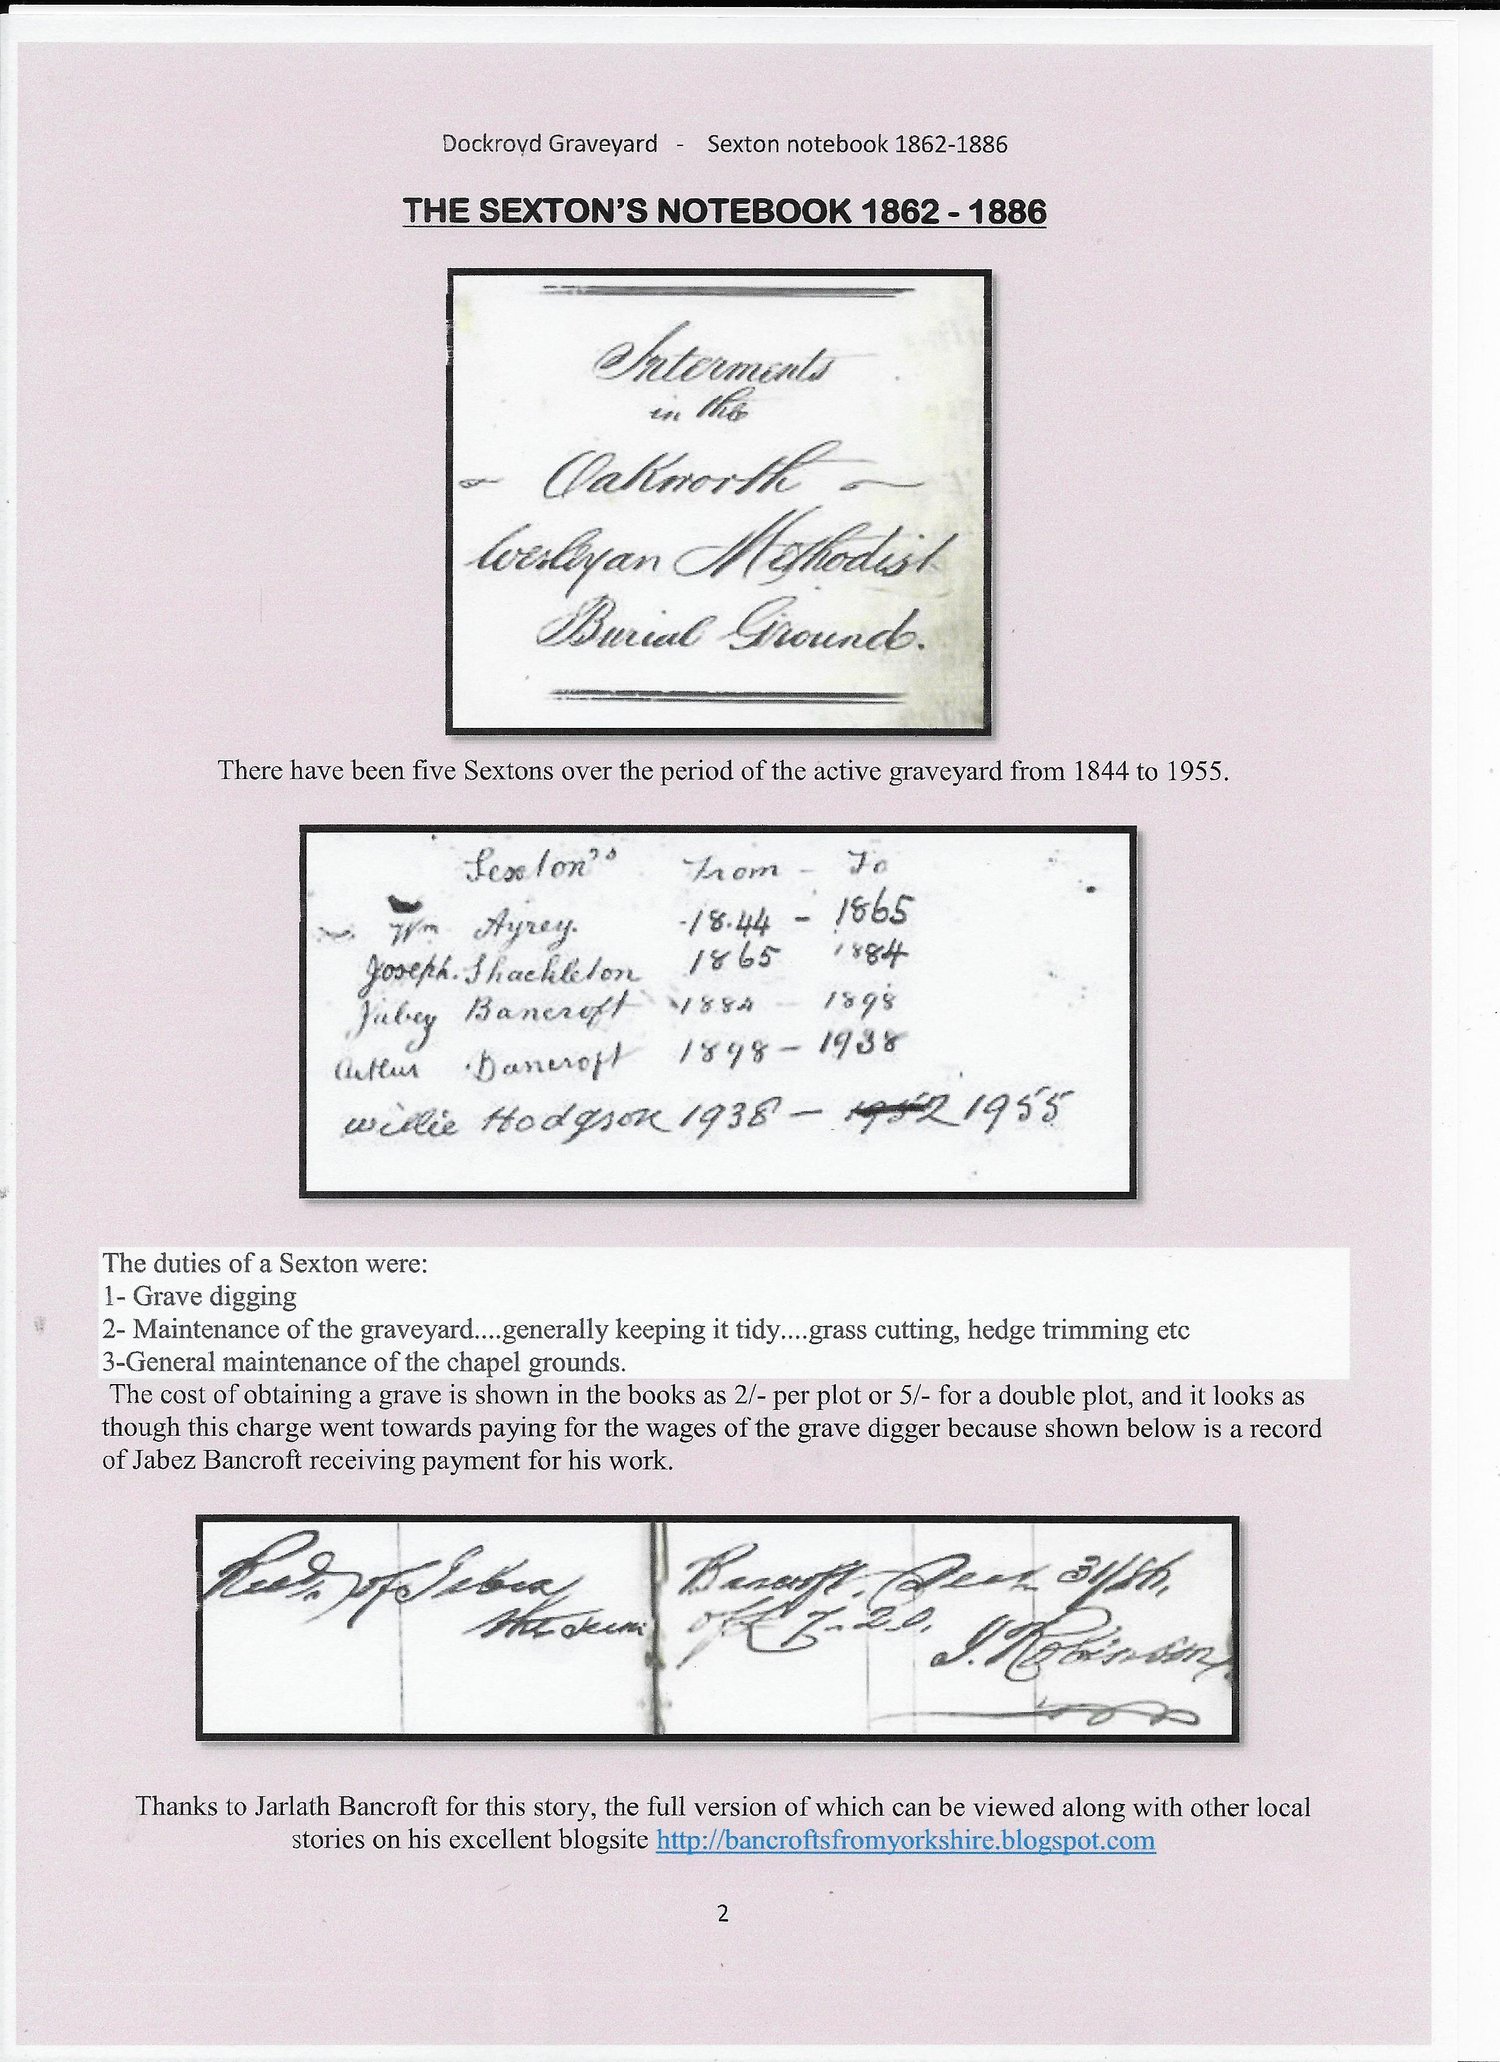 Dockroyd Graveyard - Sexton notebook 1862-1886
THE SEXTON'S NOTEBOOK 1862 - 1886
Interments
in the
Oakworth
Wesleyan Methodist
Burial Ground.
There have been five Sextons over the period of the active graveyard from 1844 to 1955.
Sexton's From - To
Wm Ayrey. 18.44 - 1865
Joseph. Shackleton 1865 1884
Jabez Bancroft 1884 - 1898
Arthur Bancroft 1898 - 1938
Willie Hodgson 1938 - 1952 1955
The duties of a Sexton were:
1- Grave digging
2- Maintenance of the graveyard....generally keeping it tidy....grass cutting, hedge trimming etc
3-General maintenance of the chapel grounds.
The cost of obtaining a grave is shown in the books as 2/- per plot or 5/- for a double plot, and it looks as
though this charge went towards paying for the wages of the grave digger because shown below is a record
of Jabez Bancroft receiving payment for his work.
of Bancroft, 31/86,
of £
J. Robinson
Thanks to Jarlath Bancroft for this story, the full version of which can be viewed along with other local
stories on his excellent blogsite http://bancroftsfromyorkshire.blogspot.com
2